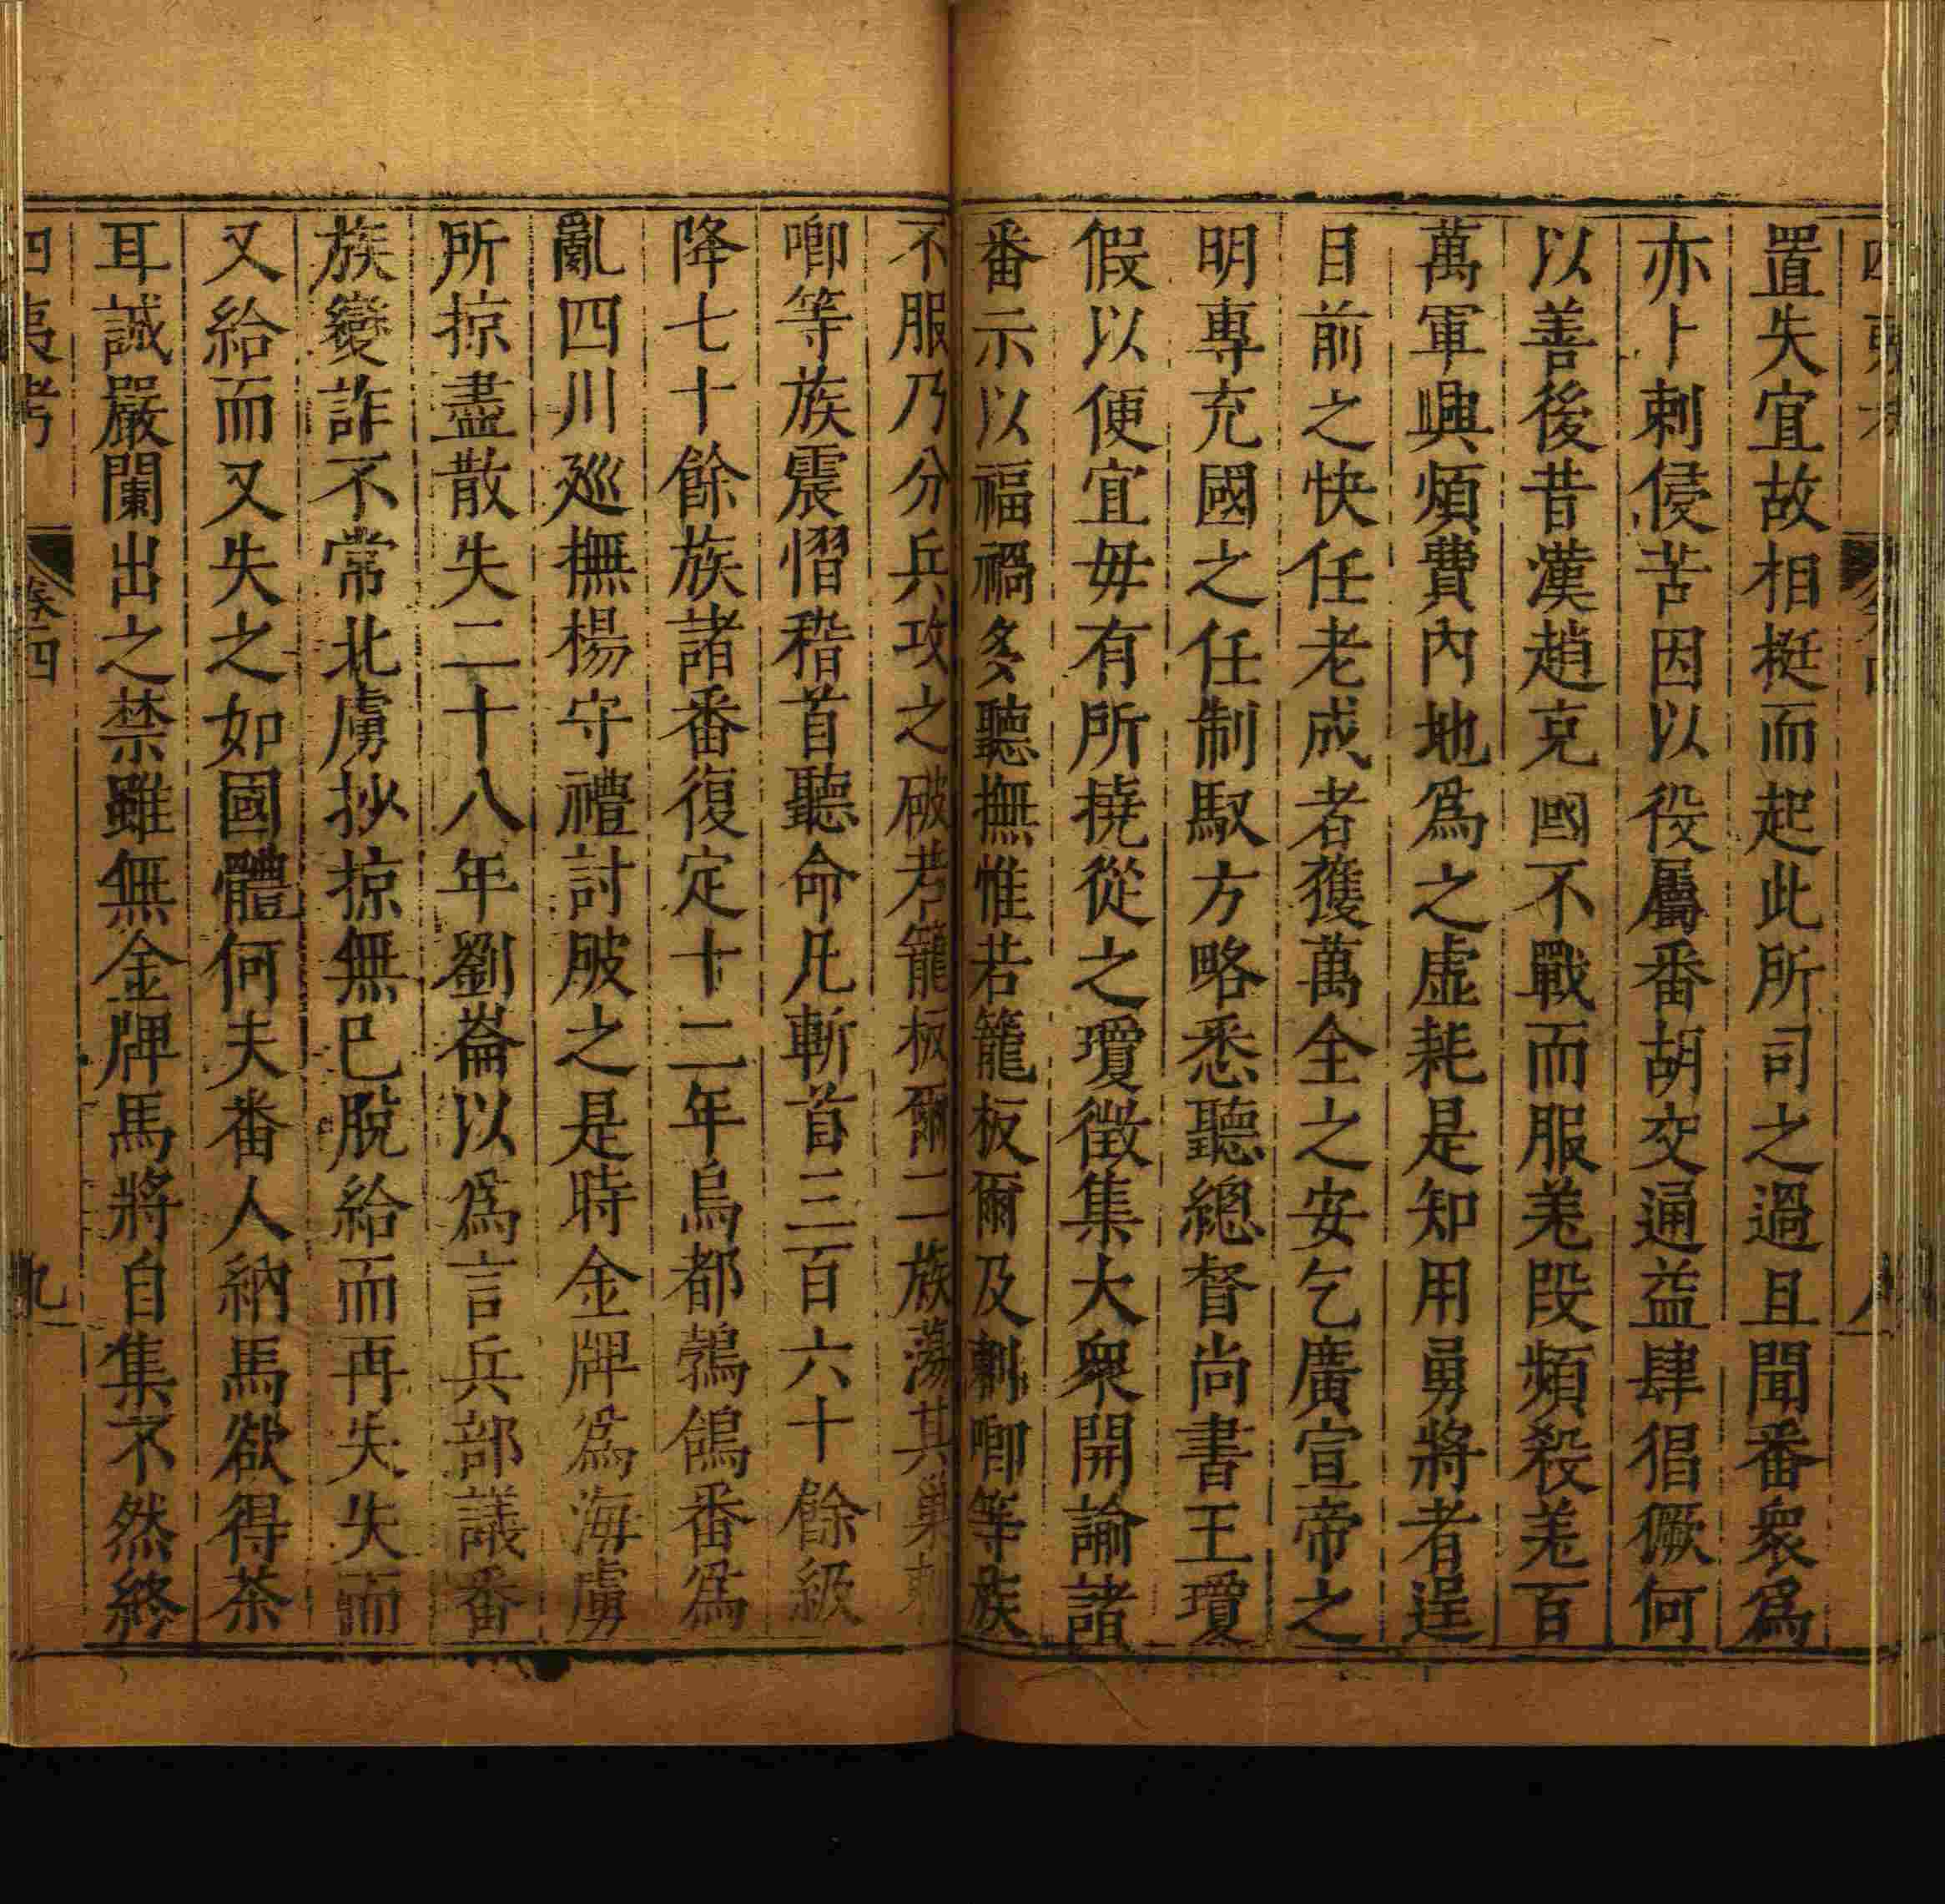 置失宜故相挺而起此所司之過且聞番衆爲
亦卜剌侵苦因以役屬番胡交通益肆猖獗何
以善後昔漢趙充國不戰而服羌段頻殺羌百
萬軍興煩費內地爲之虛耗是知用勇將者逞
目前之快任老成者獲萬全之安乞廣宣帝之
明專充國之任制馭方略悉聽總督尚書王瓊
假以便宜毋有所撓從之瓊徵集大衆開諭諸
番示以福禍多聽撫惟若籠板爾及剌唧等族
不服乃分兵攻之破若籠板爾二族蕩其巢剌
唧等族震慴稽首聽命凡斬首三百六十餘級
降七十餘族諸番復定十二年烏都鶉鴿番爲
亂四川廵撫楊守禮討破之是時金牌爲海虜
所掠盡散失二十八年劉崙以爲言兵部議番
族變詐不常北虜抄掠無巳脫給而再失失而
又給而又失之如國體何夫番人納馬欲得茶
耳誠嚴闌出之禁雖無金牌馬將自集不然終
四夷考 卷四 九